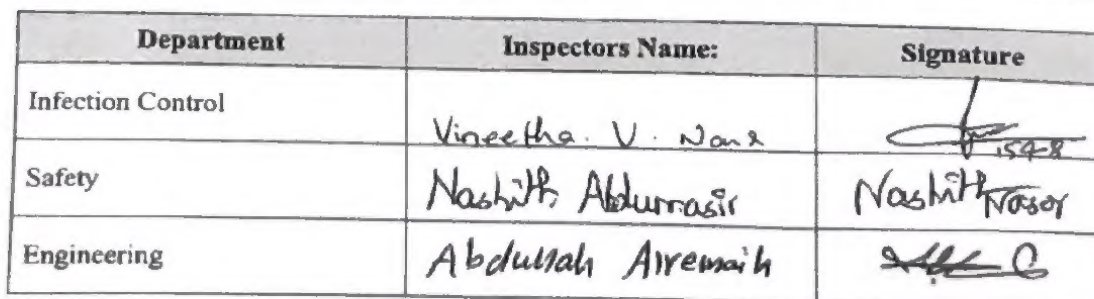 Department Inspectors Name: Signature
Infection Control Vineetha. V. 1548
Safety Nashith Abdurnasir Nashith Nasar
Engineering Abdullah